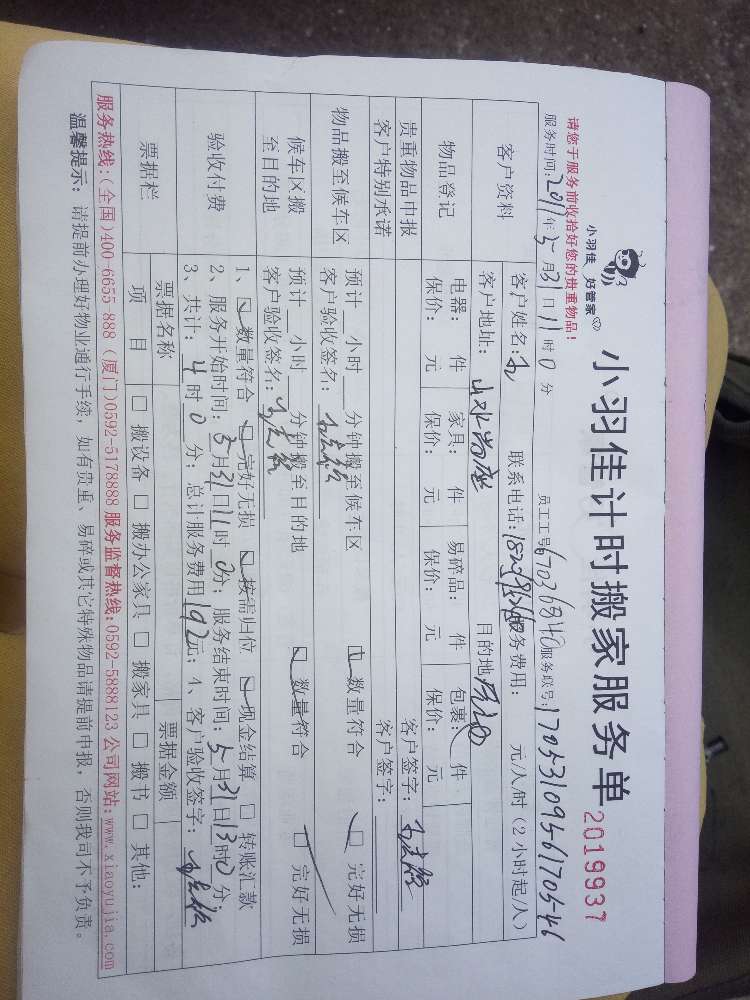 小羽佳计时搬家服务单 2019937
小羽佳 好管家
请您于服务前收拾好您的贵重物品！ 员工工号 67036840 服务联号：170531095617054 6
服务时间：2017年5月31日11时0分
客户资料 客户姓名： 联系电话： 服务费用： 元/人/时（2小时起/人）
客户地址：山水尚座 目的地：
物品登记 电器： 件 家具： 件 易碎品： 件 包裹： 件 客户签字：
保价： 元 保价： 元 保价： 元 保价： 元
贵重物品申报 客户签字：
客户特别承诺
物品搬至候车区 预计 小时 分钟搬至候车区 数量符合 完好无损
客户验收签名：
候车区搬至目的地 预计 小时 分钟搬至目的地 数量符合 完好无损
客户验收签名：
验收付费 1、 数量符合 完好无损 按需归位 现金结算 转账汇款
2、服务开始时间：5月31日11时0分；服务结束时间：5月31日13时0分
3、共计：4时0分；总计服务费用192元；4、客户验收签字：
票据栏 票据名称 票据金额
项 目 搬设备 搬办公家具 搬家具 搬书 其他：
服务热线：(全国)400-6655 888 (厦门)0592-5178888 服务监督热线：0592-5888123 公司网站：www.xiaoyujia.com
温馨提示： 请提前办理好物业通行手续，如有贵重、易碎或其它特殊物品请提前申报，否则我司不予负责。